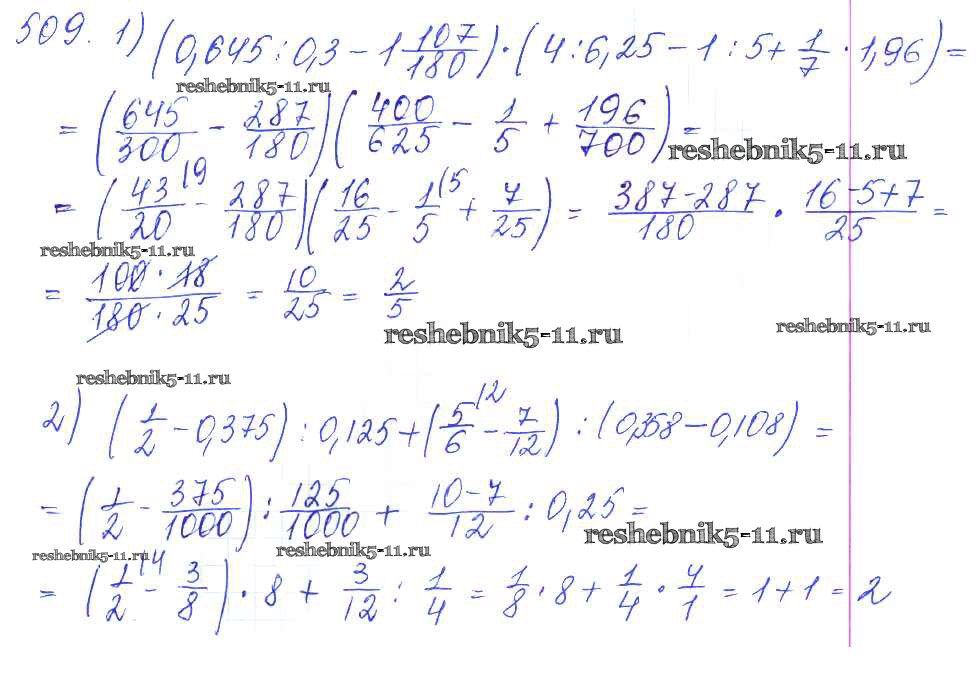 509. 1) (0,645 : 0,3 − 1 107/180) · (4 : 6,25 − 1 : 5 + 1/7 · 1,96) =
reshebnik5-11.ru
= (645/300 − 287/180)(400/625 − 1/5 + 196/700) =
reshebnik5-11.ru
= (43/20 (9 − 287/180)(16/25 − 1/5 (5 + 7/25) = 387−287/180 · 16−5+7/25 =
reshebnik5-11.ru
= 100 · 18/180 · 25 = 10/25 = 2/5
reshebnik5-11.ru
reshebnik5-11.ru
reshebnik5-11.ru
2) (1/2 − 0,375) : 0,125 + (5/6 (2 − 7/12) : (0,358 − 0,108) =
= (1/2 − 375/1000) : 125/1000 + 10−7/12 : 0,25 =
reshebnik5-11.ru
reshebnik5-11.ru
reshebnik5-11.ru
= (1/2 (4 − 3/8) · 8 + 3/12 : 1/4 = 1/8 · 8 + 1/4 · 4/1 = 1 + 1 = 2